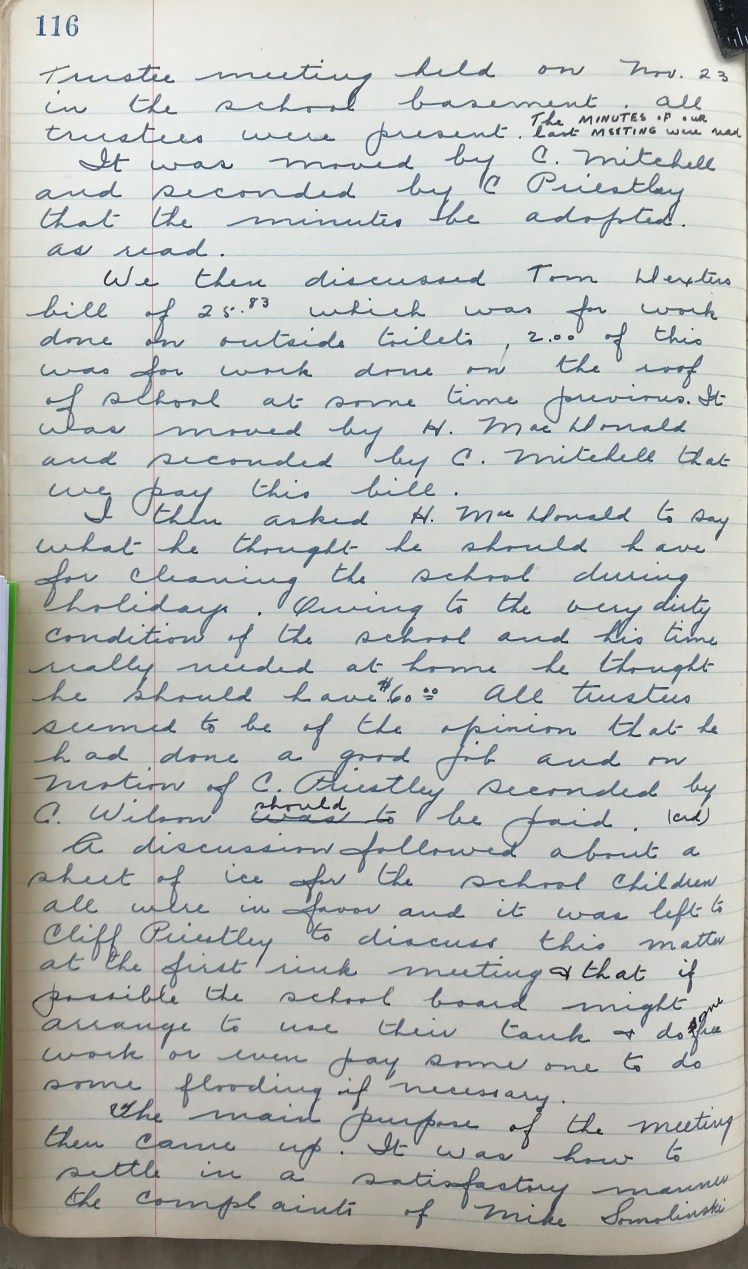 116
Trustee meeting held on Nov. 23
in the school basement. All
trustees were present. The MINUTES OF OUR
last MEETING were read
It was moved by C. Mitchell
and seconded by C Priestley
that the minutes be adopted.
as read.
We then discussed Tom Dexters
bill of 25.83 which was for work
done on outside toilets, 2.00 of this
was for work done on the roof
of school at some time previous. It
was moved by H. MacDonald
and seconded by C. Mitchell that
we pay this bill.
I then asked H. MacDonald to say
what he thought he should have
for cleaning the school during
holidays. Owing to the very dirty
condition of the school and his time
really needed at home he thought
he should have $60.00 All trustees
seemed to be of the opinion that he
had done a good job and on
motion of C. Priestley seconded by
C. Wilson was to should be paid. (crd)
A discussion followed about a
sheet of ice for the school children
all were in favor and it was left to
Cliff Priestley to discuss this matter
at the first rink meeting & that if
possible the school board might
arrange to use their tank & do some free
work or even pay some one to do
some flooding if necessary.
The main purpose of the meeting
then came up. It was how to
settle in a satisfactory manner
the complaints of Mike Somolinski